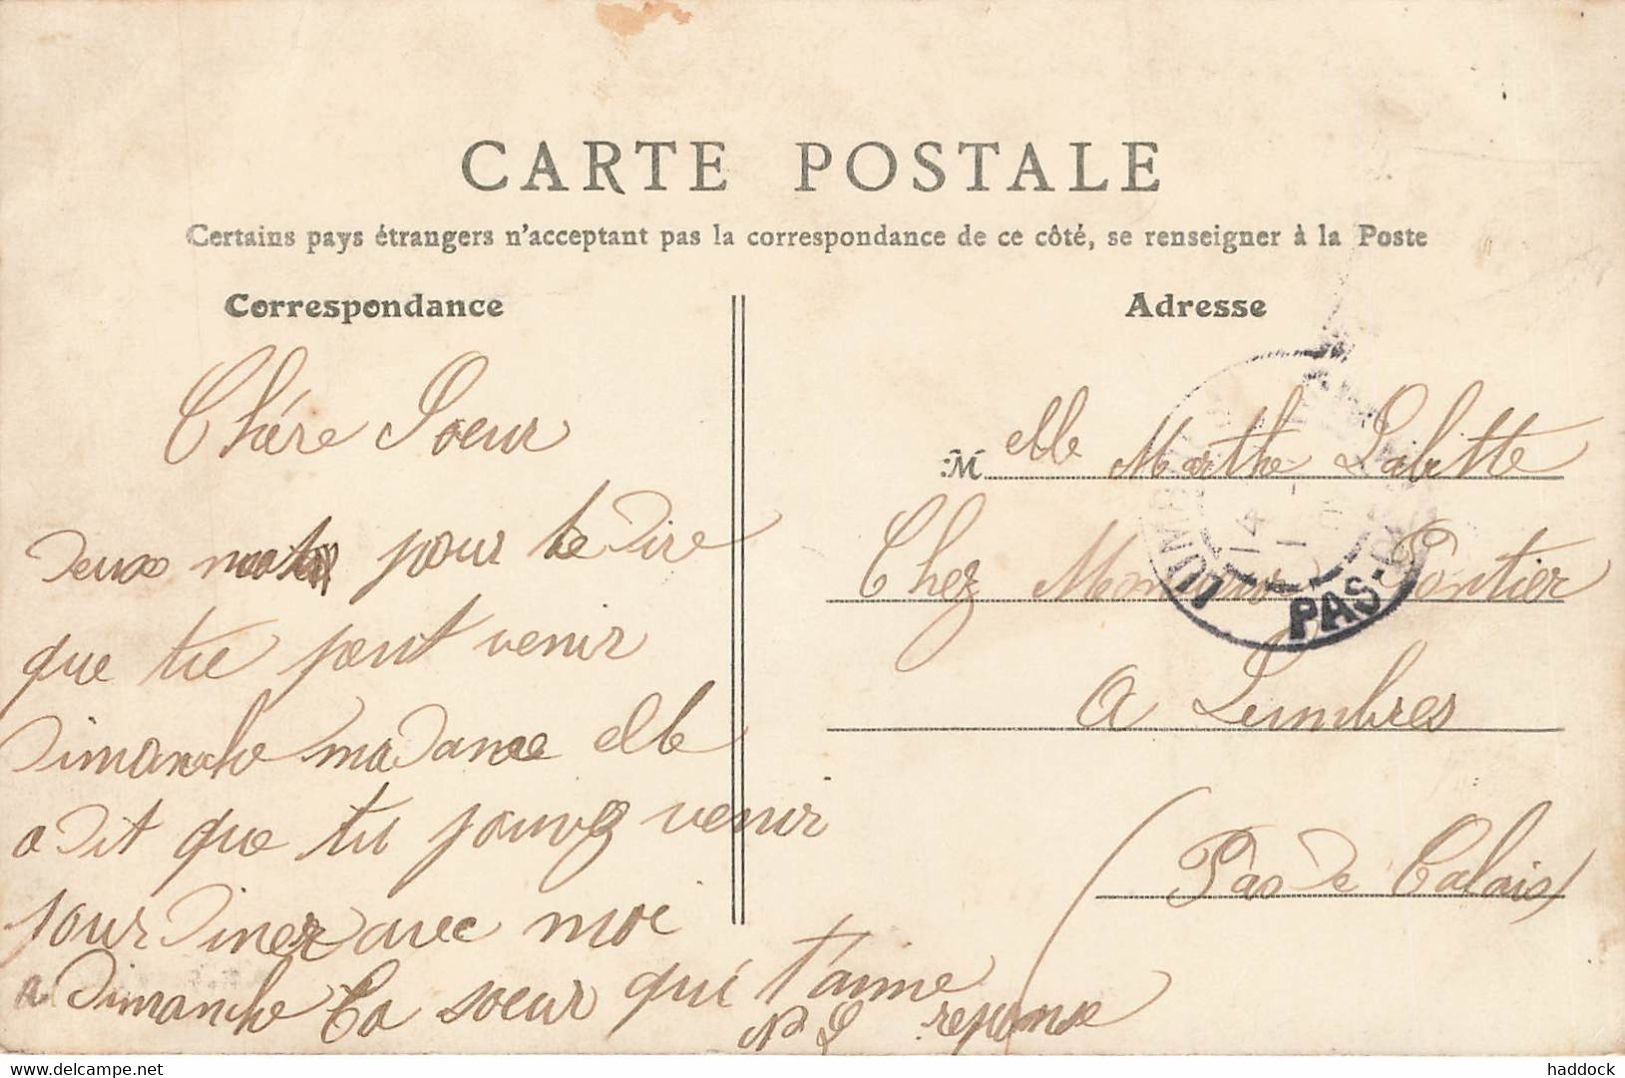 CARTE POSTALE
Certains pays étrangers n'acceptant pas la correspondance de ce côté, se renseigner à la Poste
Correspondance
Chére Soeur
deux mots pour te dire
que tu peut venir
dimanche madame elle
a dit que tu pouvez venir
pour diner avec moi
a dimanche ta soeur qui t'aime
réponse
Adresse
Melle Marthe Labitte
Chez Monsieur Pontier
A Lumbres
(Pas de Calais)
LUMBRES
14
PAS-
delcampe.net
haddock